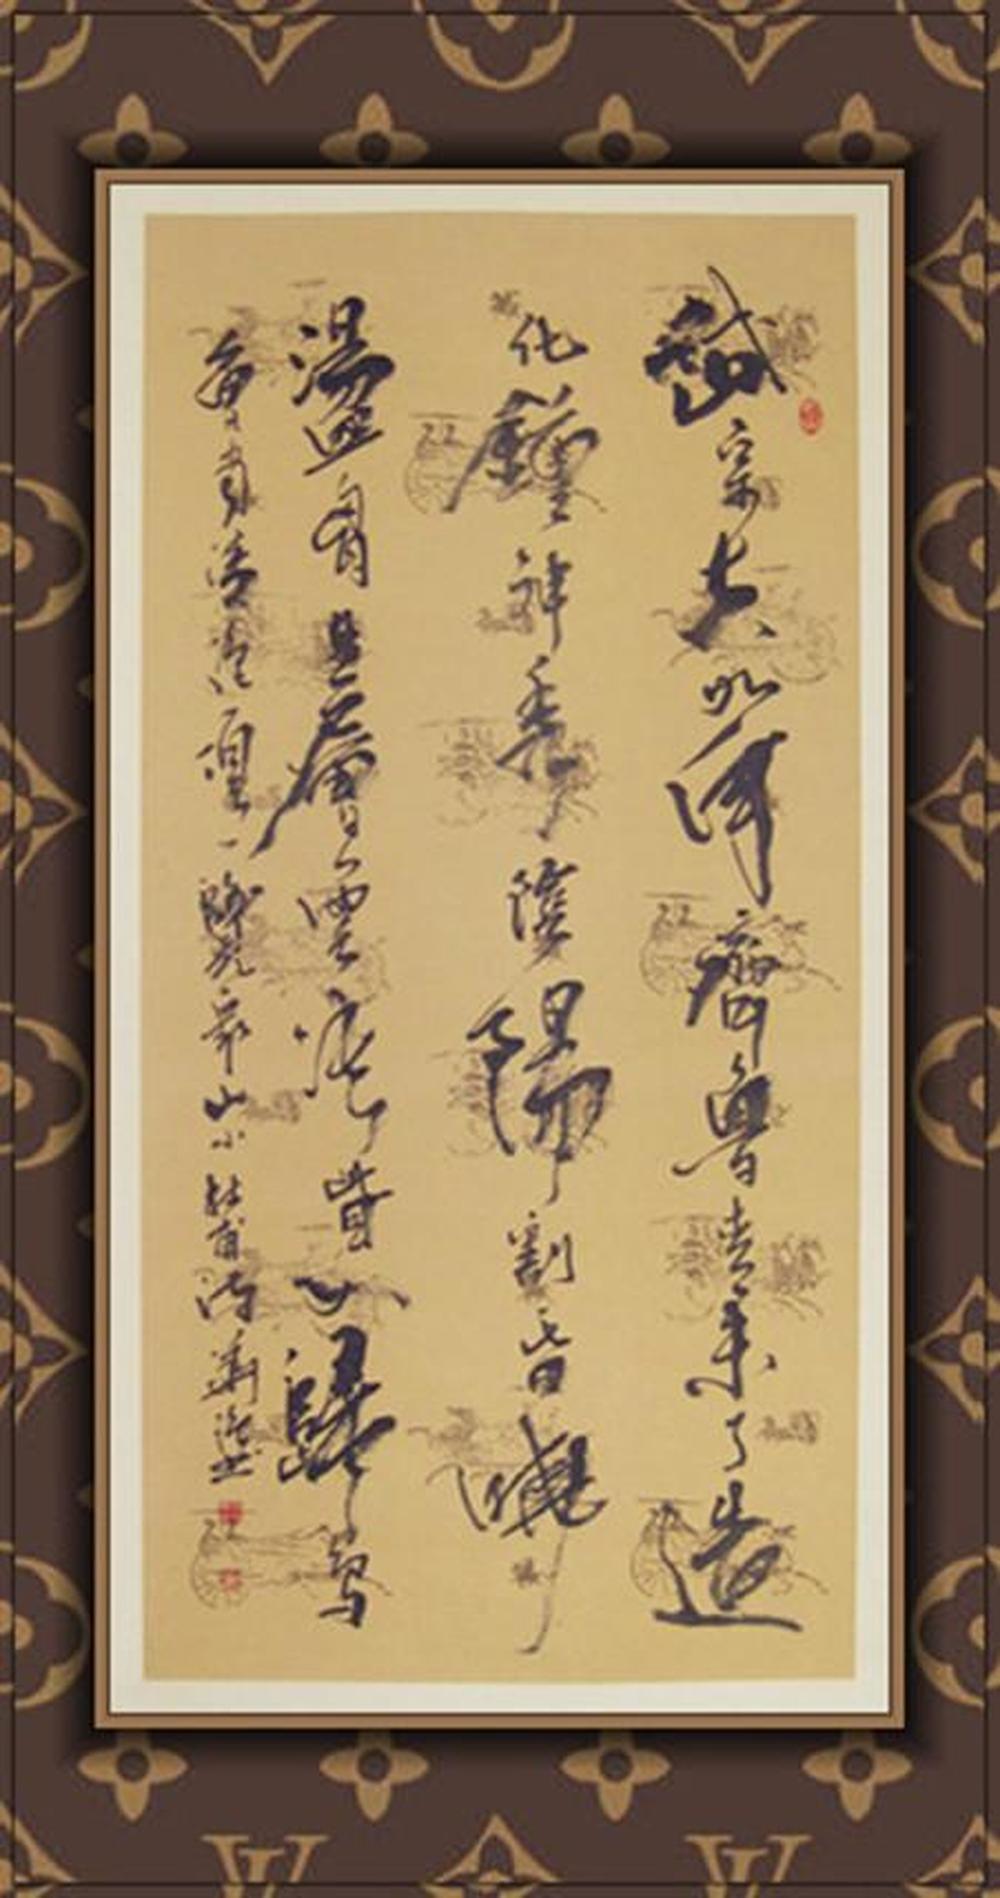 岱宗夫如何齊魯青未了造
化鍾神秀陰陽割昏曉
盪胸生層雲決眥入歸鳥
會當凌絕頂一覽眾山小杜甫詩